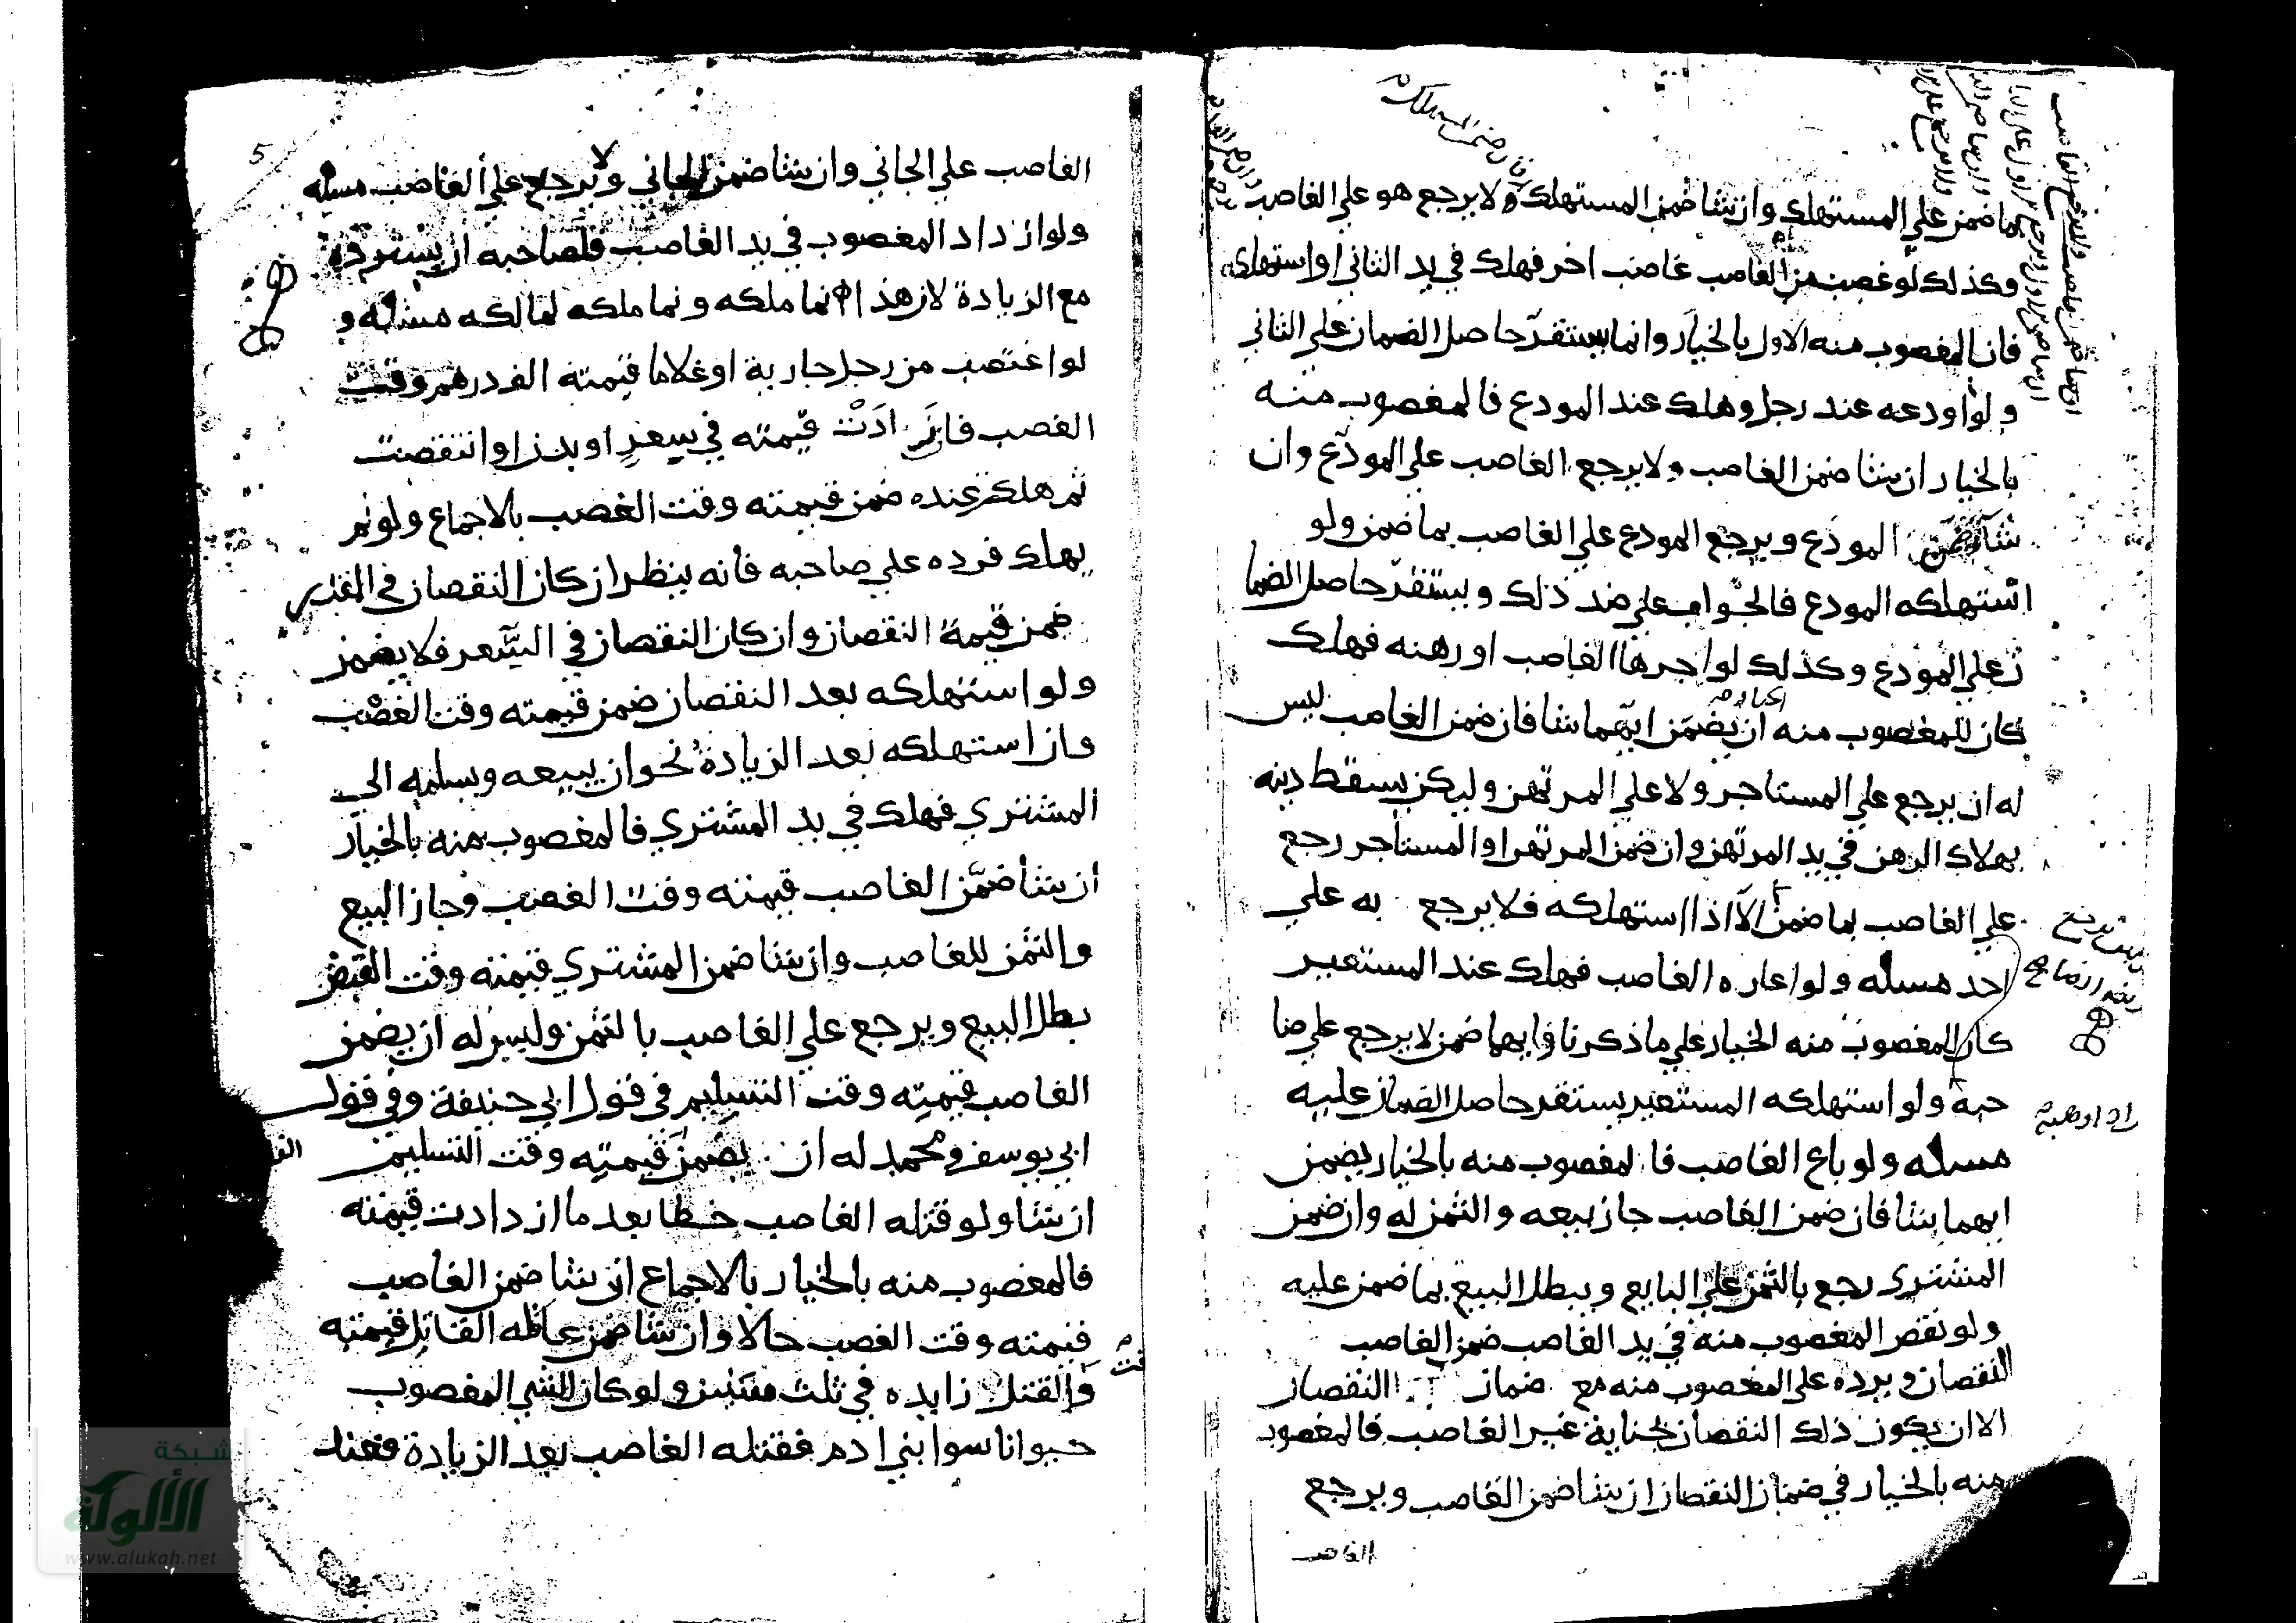 بما ضمن علي المستهلك وان شا ضمن المستهلك ولا يرجع هو علي الغاصب
وكذلك لو غصب من الغاصب غاصب اخر فهلك في يد الثاني او استهلكه
فان المغصوب منه الاول بالخيار وانما يستقر حاصل الضمان علي الثاني
ولو اودعه عند رجل وهلك عند المودع فالمغصوب منه
بالخيار ان شا ضمن الغاصب ولا يرجع الغاصب علي المودع وان
شا ضمن المودع ويرجع المودع علي الغاصب بما ضمن ولو
استهلكه المودع فالجواب علي ضد ذلك ويستقر حاصل الضما
ن علي المودع وكذلك لو اجرها الغاصب او رهنه فهلك
كان للمغصوب منه ان يضمن ايهما شا فان ضمن الغاصب ليس
له ان يرجع علي المستاجر ولا علي المرتهن وليكن يسقط دينه
بهلاك الرهن في يد المرتهن وان ضمن المرتهن او المستاجر رجع
علي الغاصب بما ضمن الا اذا استهلكه فلا يرجع به علي
احد مسله ولو اعاره الغاصب فهلك عند المستعير
كان للمغصوب منه الخيار علي ما ذكرنا وايهما ضمن لا يرجع علي صا
حبه ولو استهلكه المستعير يستقر حاصل الضمان عليه
مسله ولو باع الغاصب فالمغصوب منه بالخيار يضمن
ايهما شا فان ضمن الغاصب جاز بيعه والثمن له وان ضمن
المشتري رجع بالثمن علي البايع ويبطل البيع بما ضمن عليه
ولو نقص المغصوب منه في يد الغاصب ضمن الغاصب
النقصان ويرده علي المغصوب منه مع ضمان النقصان
الا ان يكون ذلك النقصان بجناية غير الغاصب فالمغصوب
منه بالخيار في ضمان النقصان ان شا ضمن الغاصب ويرجع
الغاصب
5
الغاصب علي الجاني وان شا ضمن الجاني ولا يرجع علي الغاصب مسله
ولو ازداد المغصوب في يد الغاصب فلصاحبه ان يسترده
مع الزيادة لان هذا نما ملكه ونما ملكه لمالكه مسله و
لو اغتصب من رجل جارية او غلاما قيمته الف درهم وقت
الغصب فازدادت قيمته في سعر او بدن او انتقصت
ثم هلك عنده ضمن قيمته وقت الغصب بالاجماع ولو لم
يهلك فرده علي صاحبه فانه ينظر ان كان النقصان في
ضمن قيمة النقصان وان كان النقصان في السعر فلا يضمن
ولو استهلكه بعد النقصان ضمن قيمته وقت الغصب
وان استهلكه بعد الزيادة نحو ان يبيعه ويسلمه الي
المشتري فهلك في يد المشتري فالمغصوب منه بالخيار
ان شا ضمن الغاصب قيمته وقت الغصب وجاز البيع
والثمن للغاصب وان شا ضمن المشتري قيمته وقت القبض
بطل البيع ويرجع علي الغاصب بالثمن وليس له ان يضمن
الغاصب قيمته وقت التسليم في قول ابي حنيفة وفي قول
ابي يوسف ومحمد له ان يضمن قيمته وقت التسليم
ان شا ولو قتله الغاصب خطا بعد ما ازدادت قيمته
فالمغصوب منه بالخيار بالاجماع ان شا ضمن الغاصب
قيمته وقت الغصب حالا وان شا ضمن عاقله القاتل قيمته
والقتل زايده في ثلث سنين ولو كان الشي المغصوب
حيوانا سوا بني ادم فقتله الغاصب بعد الزيادة فعند
شبكة
الألوكة
www.alukah.net